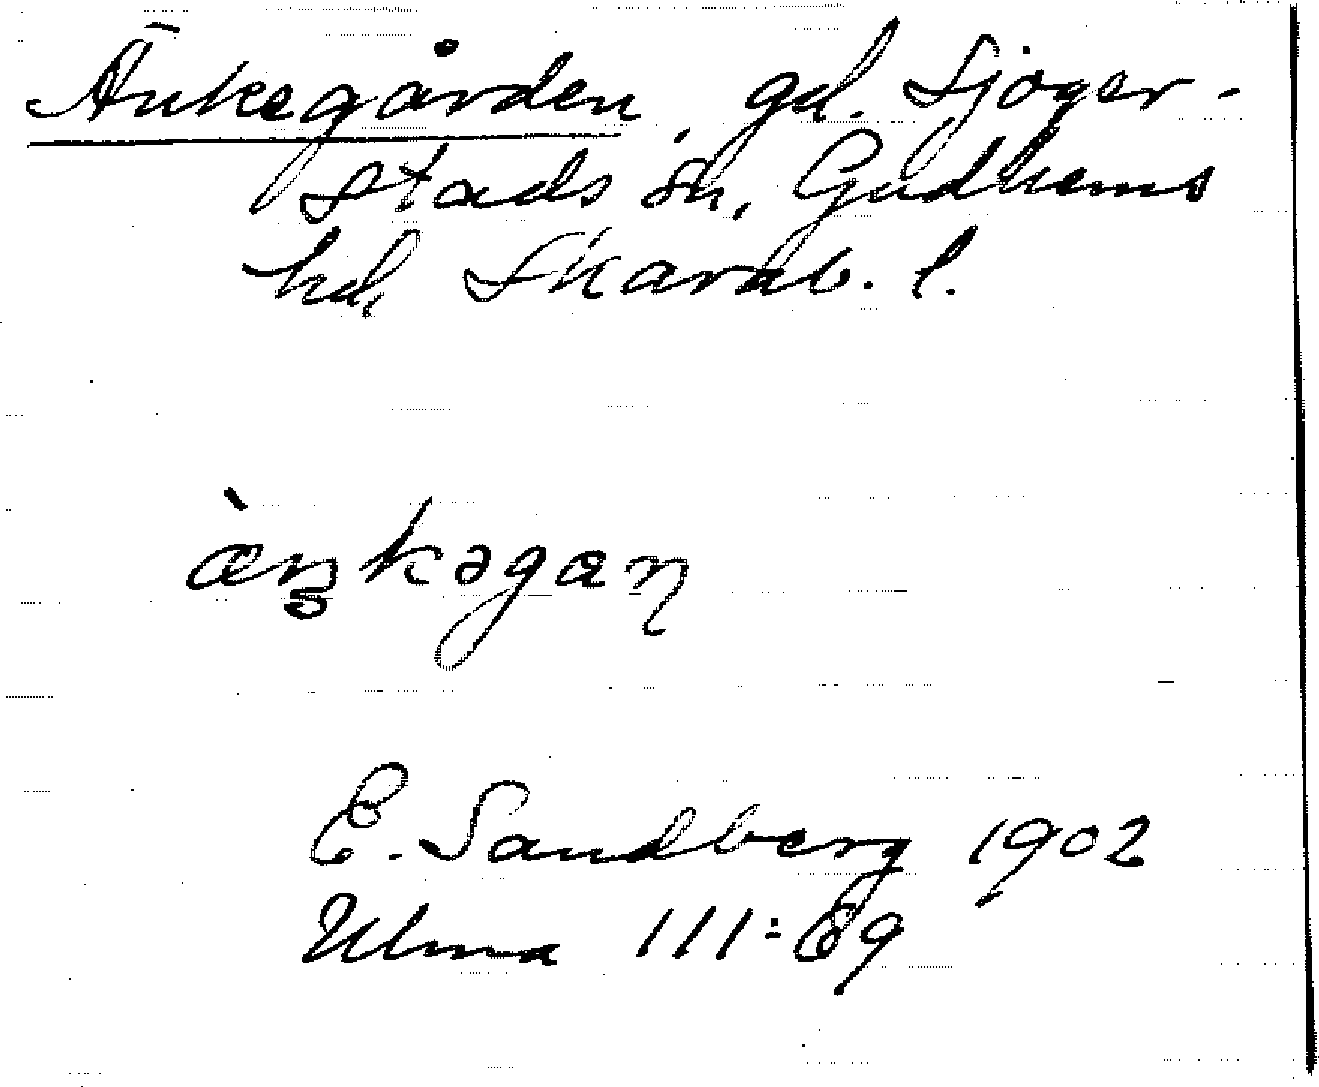 Änkegården, gd. Sjoger-
stads sn, Gudhems
hd, Skarab. l.
æ̀n̥kəgaɳ
E. Sandberg 1902
Ulma 111:69